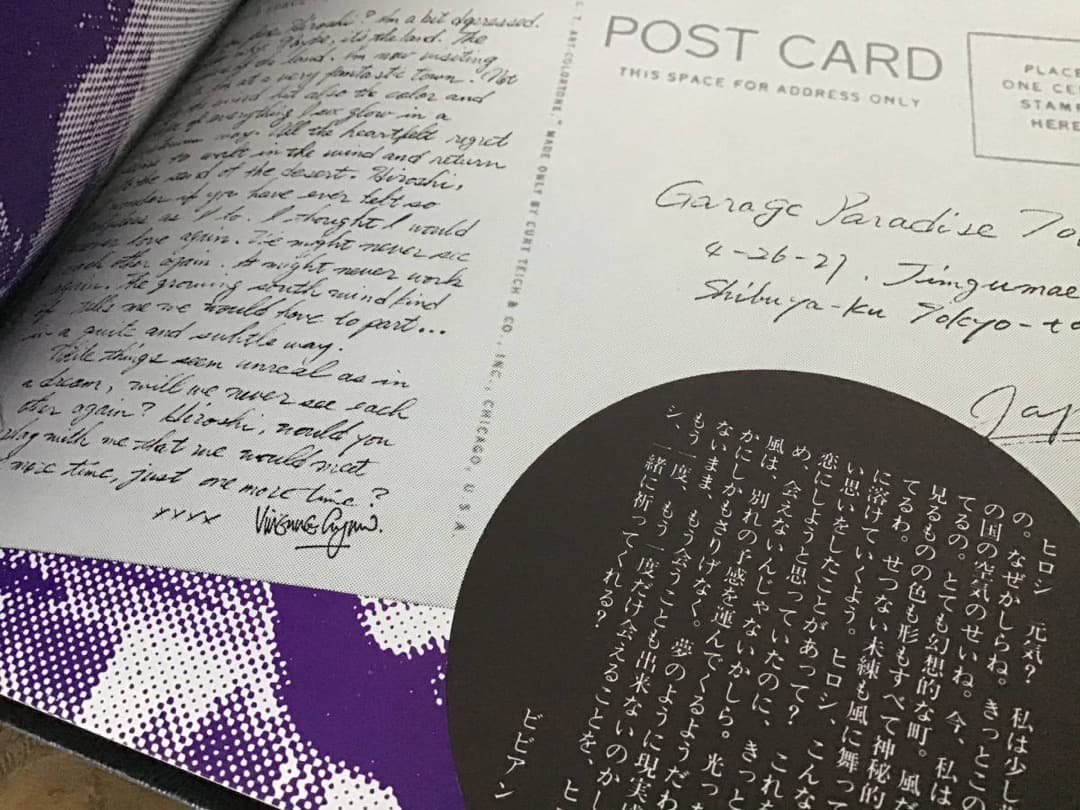 Hiroshi? I'm a bit depressed.
Maybe, it's the land. The
of the land. I'm now visiting
at a very fantastic town. Not
wind but also the color and
of everything few glow in a
way. All the heartfelt regret
to melt in the wind and return
to the sand of the desert. Hiroshi,
wonder if you have ever felt so
as I do. I thought I would
never love again. We might never see
each other again. It might never work
again. The growing south wind kind
of tells me we would have to part...
in a quiet and subtle way.
While things seem unreal as in
a dream, will we never see each
other again? Hiroshi, would you
play with me that we would meet
more time, just one more time?
xxxx
C. T. ART-COLORTONE." MADE ONLY BY CURT TEICH & CO., INC., CHICAGO, U.S.A.
POST CARD
THIS SPACE FOR ADDRESS ONLY
PLACE
ONE CE
STAM
HERE
Garage Paradise To
4-26-27, Jingumae
Shibuya-Ku Tokyo-to
Jap
ヒロシ 元気? 私は少し
の。なぜかしらね。きっとこの
の国の空気のせいね。今、私は
てるの。とても幻想的な町。風
見るものの色も形もすべて神秘的
てるわ。せつない未練も風に舞って
に溶けていくよう。ヒロシ、こんな
い思いをしたことがあって? これを
恋にしようと思っていたのに、きっと
め、会えないんじゃないかしら。光っ
風は、別れの予感を運んでくるようだわ
かにしかもさりげなく。夢のように現実
ないまま、もう会うことも出来ないのかし
もう一度、もう一度だけ会えることを、ヒ
シ、一緒に祈ってくれる?
ビビアン